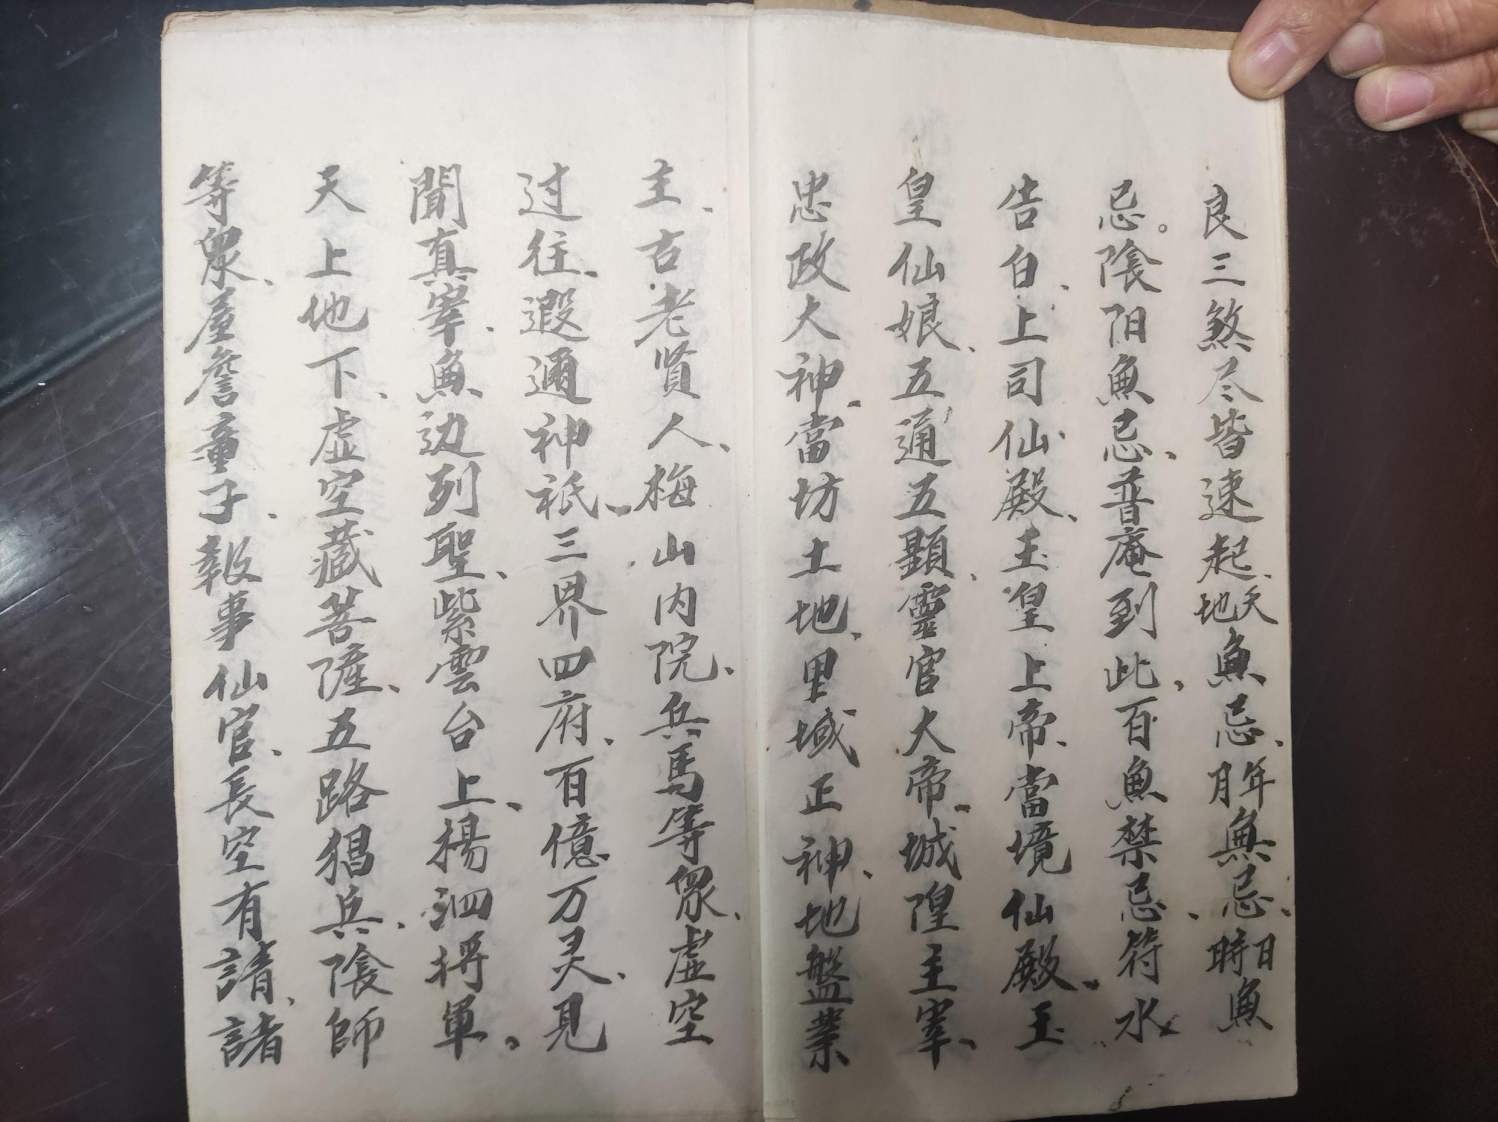 良三煞尽皆速起、天地魚忌、年月無忌、日時魚
忌。陰阳魚忌、普庵到此、百魚禁忌、符水
告白、上司仙殿、玉皇上帝、當境仙殿、玉
皇仙娘、五通五顕、靈官大帝、城隍主宰、
忠政大神、當坊土地、里域正神、地盤業
主、古老賢人、梅山内院、兵馬等眾、虚空
过往、遐邇神祇、三界四府、百億万灵、見
聞真宰、魚边列聖、紫雲台上、楊泗將軍、
天上地下、虚空藏菩薩、五路猖兵、陰師
等眾、屋詹童子、報事仙官、長空有請、諸